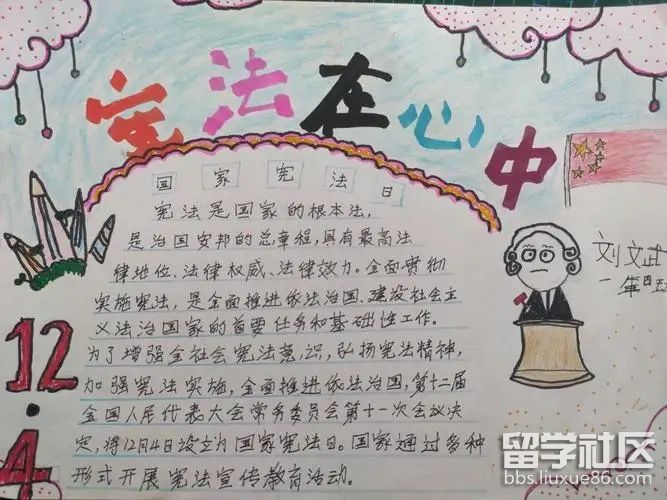 宪法在心中
国家宪法日
宪法是国家的根本法,
是治国安邦的总章程,具有最高法
律地位、法律权威、法律效力。全面贯彻
实施宪法,是全面推进依法治国、建设社会主
义法治国家的首要任务和基础性工作。
为了增强全社会宪法意识,弘扬宪法精神,
加强宪法实施,全面推进依法治国,第十二届
全国人民代表大会常务委员会第十一次会议决
定,将12月4日设立为国家宪法日。国家通过多种
形式开展宪法宣传教育活动。
12.4
刘文武
一年四五
留学社区
bbs.liuxue86.com